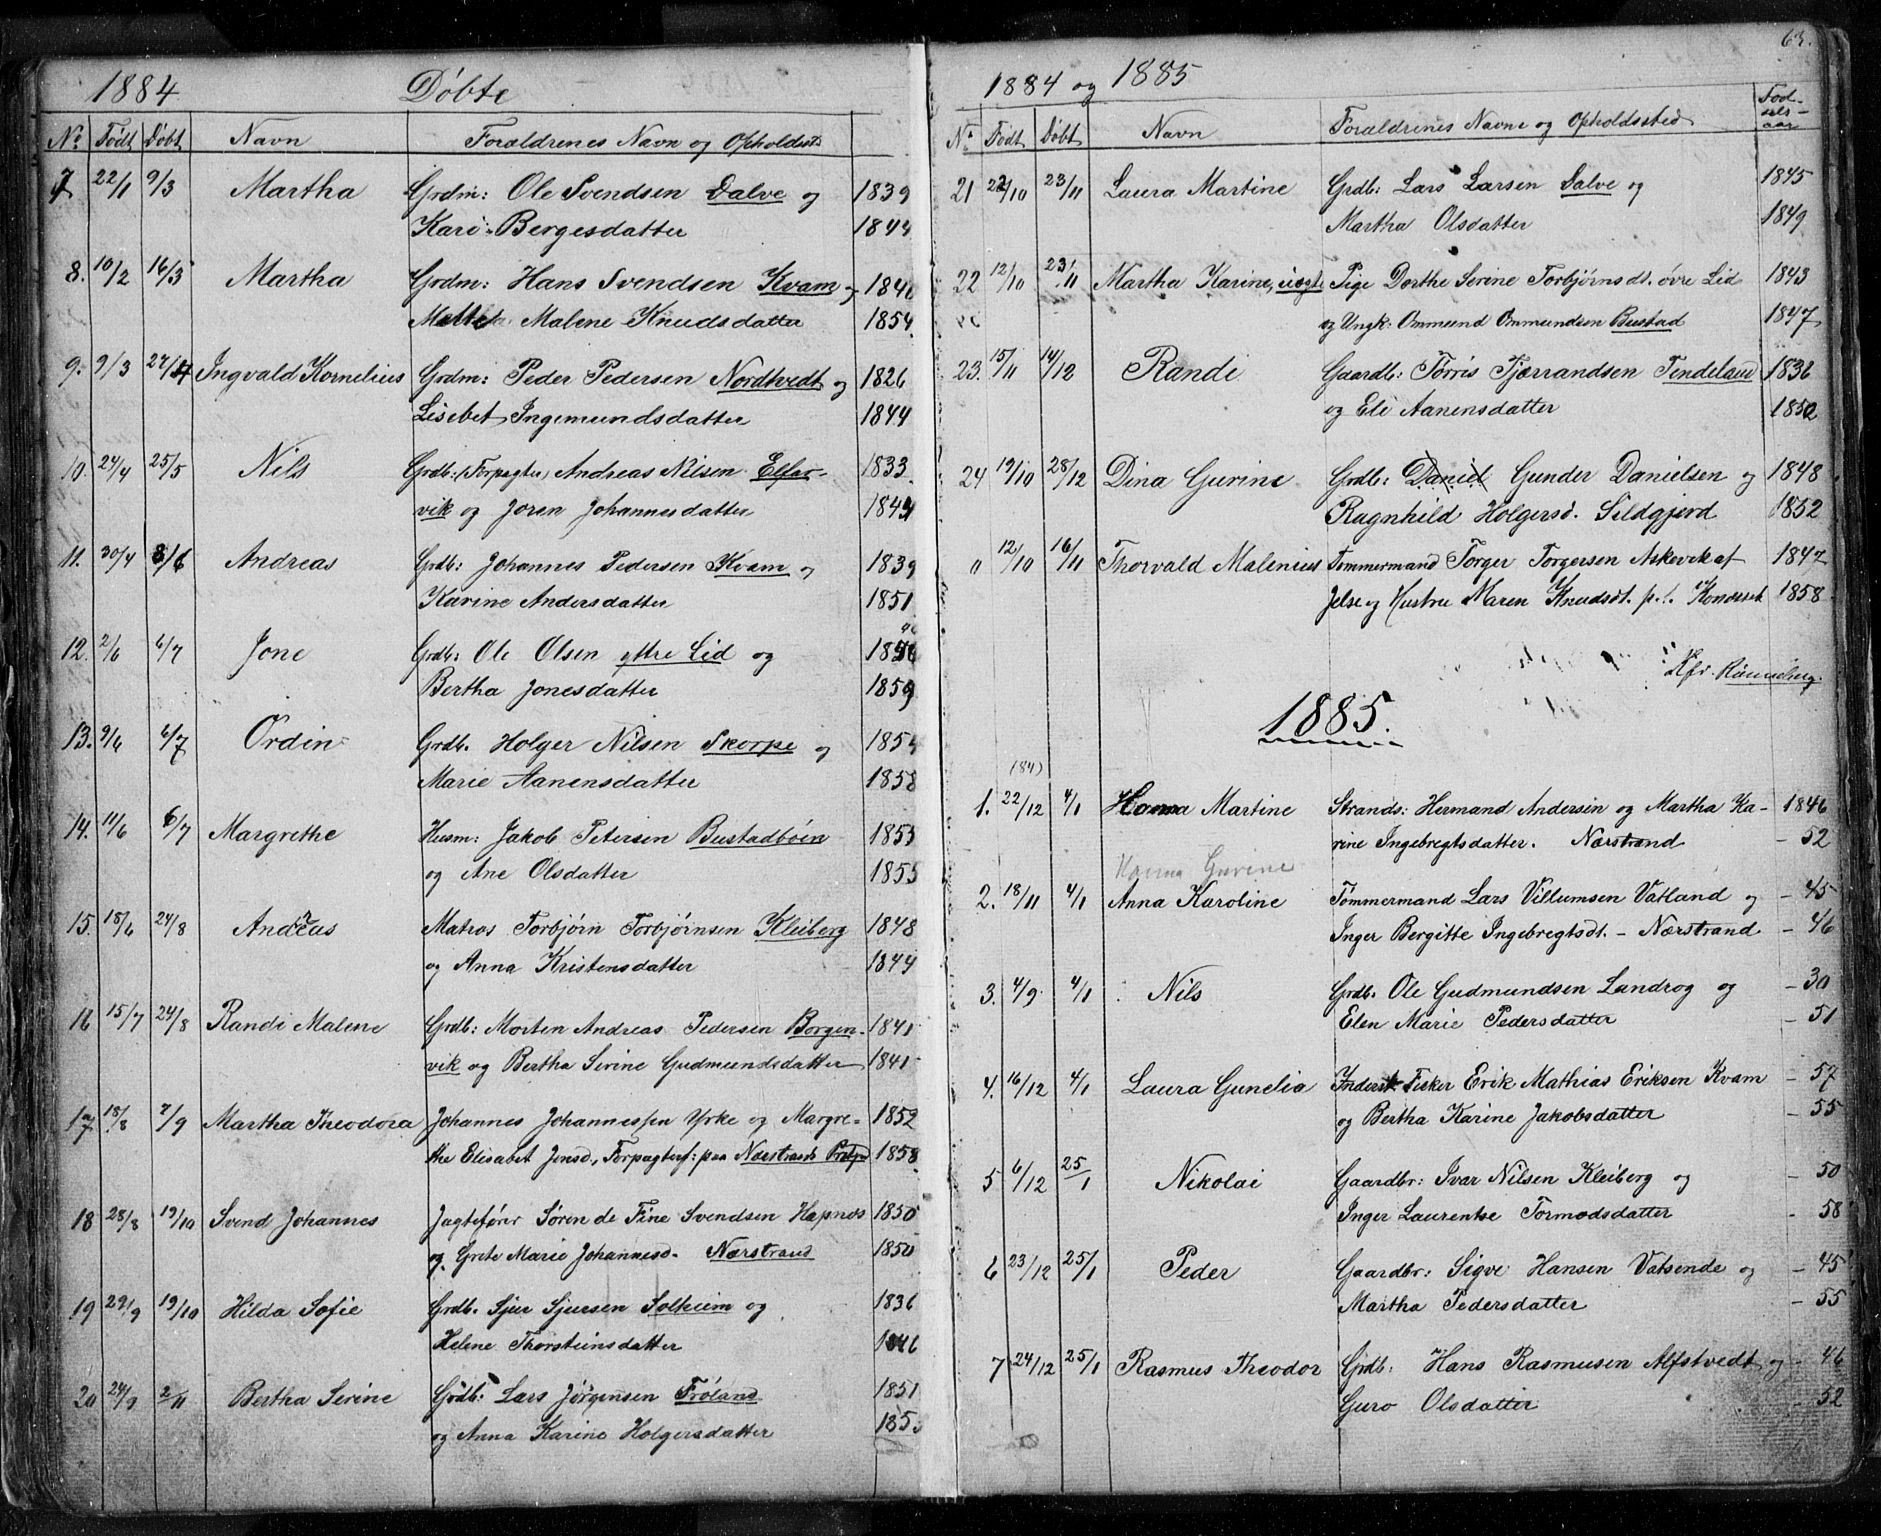 1884 Döbte
No Födt Döbt Navn Forældrenes Navn og Opholdsst
7 22/1 9/3 Martha Grdm: Ole Svendsen Dalve og 1839
Kari Bergesdatter 1844
8. 10/2 16/3 Martha Grdm: Hans Svendsen Kvam og
Malene Knudsdatter 1854
9. 9/3 27/4 Ingvald Kornelius Grdm: Peder Pedersen Nordtvedt og 1826
Lisebet Ingemundsdatter 1844
10. 24/4 25/5 Nils Grdb: (Forpagter) Andreas Nilsen Elfar- 1833
vik og Joren Johannesdatter
11. 30/4 8/6 Andreas Grdb: Johannes Pedersen Kvam og 1839
Karine Andersdatter 1851
12. 2/6 6/7 Jone Grdb: Ole Olsen yttre Lid og
Bertha Jonesdatter 1859
13. 9/6 6/7 Ordin Grdb. Holger Nilsen Skorpe og 1854
Marie Aanensdatter 1858
14. 11/6 6/7 Margrethe Husm: Jakob Petersen Bustadböen 1853
og Ane Olsdatter 1855
15. 18/6 24/8 Andreas Matros Torbjørn Torbjørnsen Kleiberg 1848
og Anna Kristensdatter 1844
16 15/7 24/8 Randi Malene Grdb: Morten Andreas Pedersen Borgen- 1841
vik og Bertha Serine Gudmundsdatter 1841
17 18/8 7/9 Martha Theodora Johannes Johannessen Yrke og Margre- 1852
the Elisabet Jensd., Forpagterf: paa Nærstrands 1858
18 28/8 19/10 Svend Johannes Jagtefører Søren de Fine Svendsen Hapnes 1850
og Grete Marie Johannesd. Nærstrand 1850
19 29/9 19/10 Hilda Sofie Grdb. Sjur Sjursen Solheim og 1836
Helene Thorsteinsdatter 1846
20 24/9 2/11 Bertha Serine Grdb: Lars Jørgensen Frøland 1851
og Anna Karine Holgersdatter
63.
1884 og 1885
No Födt Döbt Navn Forældrenes Navne og Opholdssted Föd-
sels-
aar
21 22/10 23/11 Laura Martine Grdb: Lars Larsen Dalve og 1845
Martha Olsdatter 1849
22 12/10 23/11 Martha Karine, uægte Pige Dorthe Serine Torbjørnsdt. øvre Lid 1843
og Ungk: Ommund Ommundsen Bustad 1847
23. 15/11 14/12 Randi Gaardb: Torris Tjærrandsen Tendeland 1836
og Eli Aanensdatter 1850
24 19/10 28/12 Dina Gurine Grdb: Daniel Gunder Danielsen og 1848
Ragnhild Holgersd. Sildgjerd 1852
" 12/10 16/11 Thorvald Malenius Tømmermand Torger Torgersen Askevik af 1847
Jelse og Hustru Maren Knudsdt. p.t. 1858
1885.
(84)
1. 22/12 4/1 Hanna Martine Strands: Hermand Andersen og Martha Ka- 1846
rine Ingebregtsdatter. Nærstrand - 52
Hanna Gurine
2. 18/11 4/1 Anna Karoline Tømmermand Lars Villumsen Vatland og - 45
Inger Bergitte Ingebregtsdt. - Nærstrand - 46
3. 4/9 4/1 Nils Grdb. Ole Gudmundsen Landrog og - 30
Elen Marie Pedersdatter - 51
4. 16/12 4/1 Laura Gunelia Inderst Fisker Erik Mathias Eriksen Kvam - 57
og Bertha Karine Jakobsdatter - 55
5 6/12 25/1 Nikolai Gaardbr: Ivar Nilsen Kleiberg og - 50
Inger Laurentse Tormodsdatter - 58
6 23/12 25/1 Peder Gaardbr: Sigve Hansen Vatsende og - 45
Martha Pedersdatter - 55
7 24/12 25/1 Rasmus Theodor Grdb: Hans Rasmusen Alfstvedt og - 46
Guro Olsdatter - 52